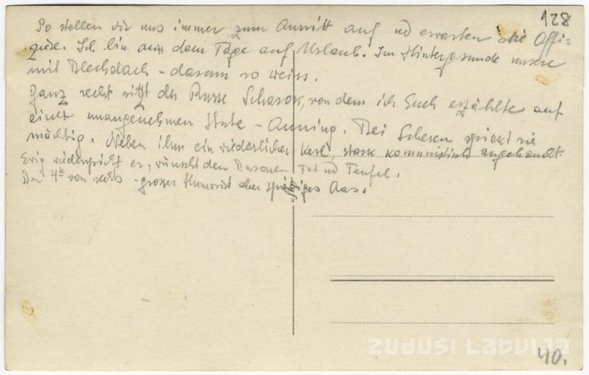 128
So stellen wir uns immer zum Ausritt auf und erwarten die Offi-
ziere. Ich bin aus dem Tage auf Urlaub. Im Hintergrunde unsere
mit Blechdach - darum so weiss.
Ganz recht sitzt der Russe von dem ich Euch erzählte auf
einer unangenehmen Stute - Bei spricht sie
mächtig. Neben ihm ein niederlicher Kerl, stark kommunistisch angehaucht.
er, wünscht den Tod und Teufel.
Der 4te von rechts - grosses Humorist aber Aas.
zudusi Latvija
40.